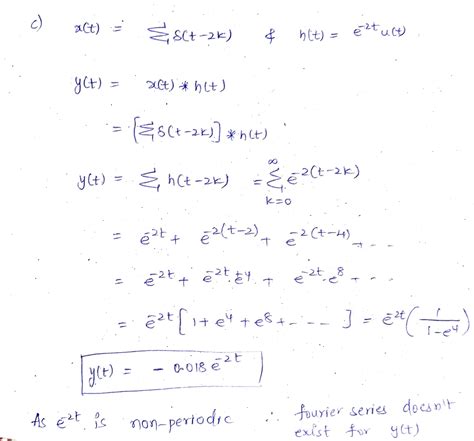 c) x(t) = Σ δ(t-2k) & h(t) = e^-2t u(t)
y(t) = x(t) * h(t)
= [Σ δ(t-2k)] * h(t)
y(t) = Σ h(t-2k) = Σ_{k=0}^{∞} e^-2(t-2k)
= e^-2t + e^-2(t-2) + e^-2(t-4) + ---
= e^-2t + e^-2t . e^4 + e^-2t . e^8 + ---
= e^-2t [ 1 + e^4 + e^8 + ---- ] = e^-2t ( 1 / 1-e^4 )
y(t) = - 0.018 e^-2t
As e^-2t is non-periodic ∴ fourier series doesn't
exist for y(t)